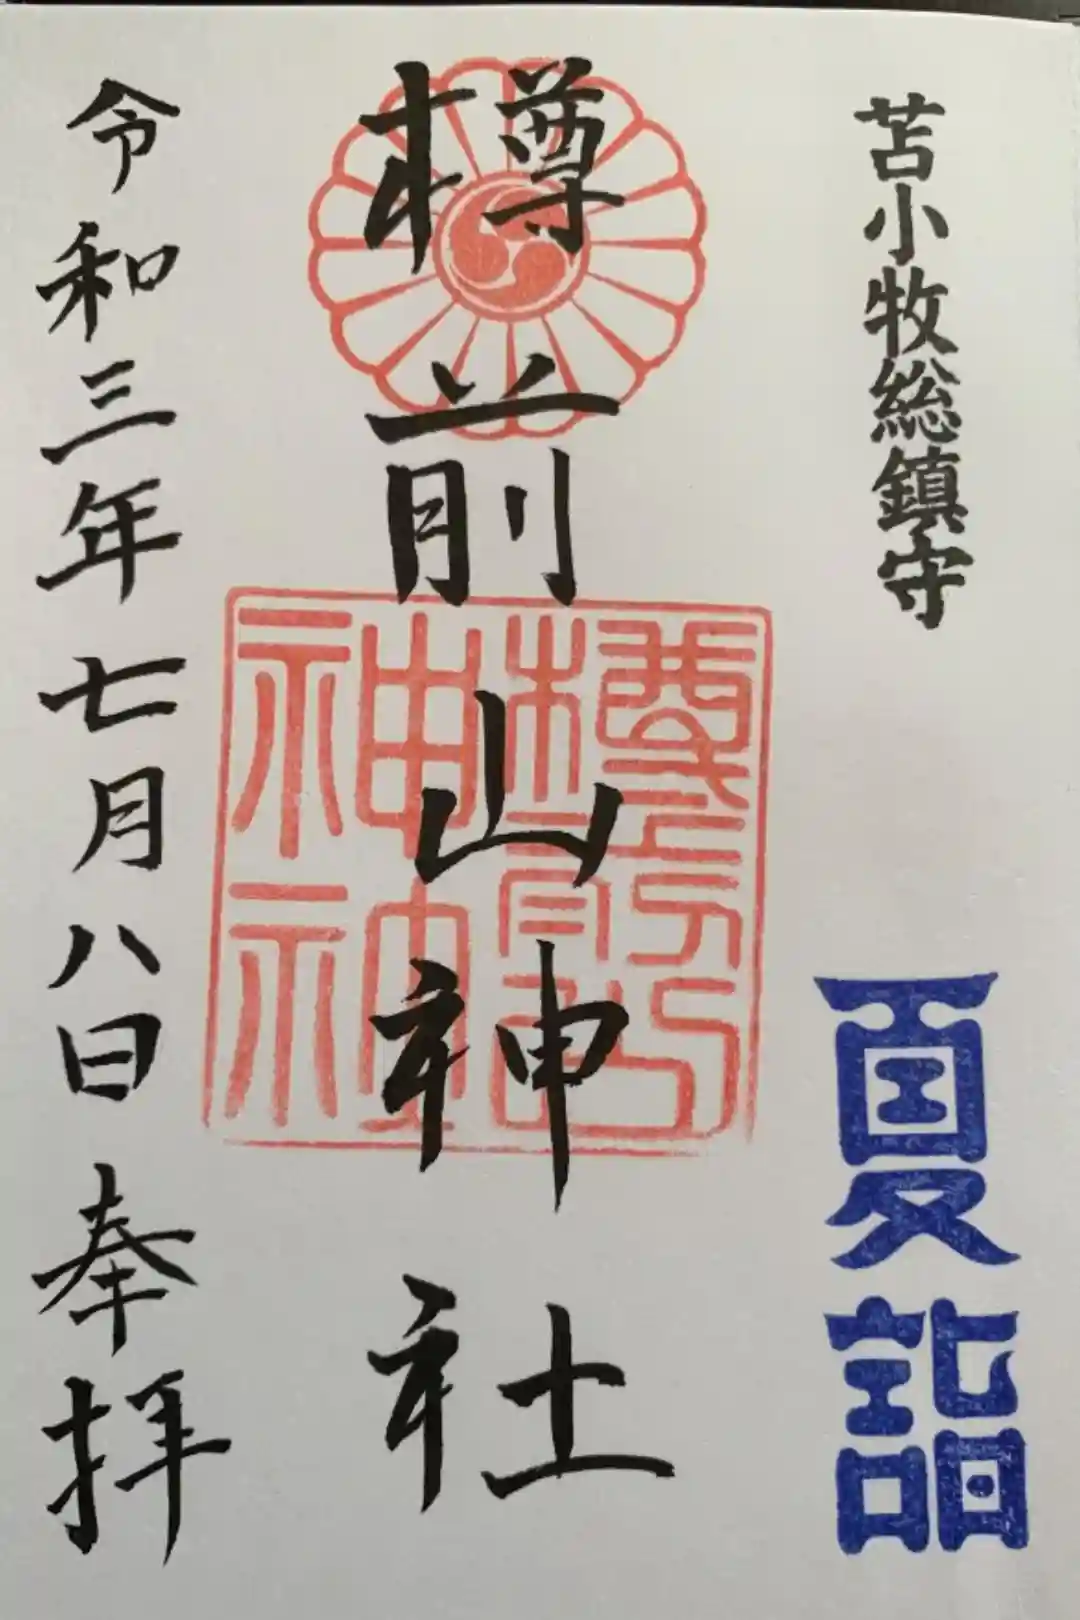 苫小牧総鎮守
夏詣
樽前山神社
令和三年七月八日奉拝